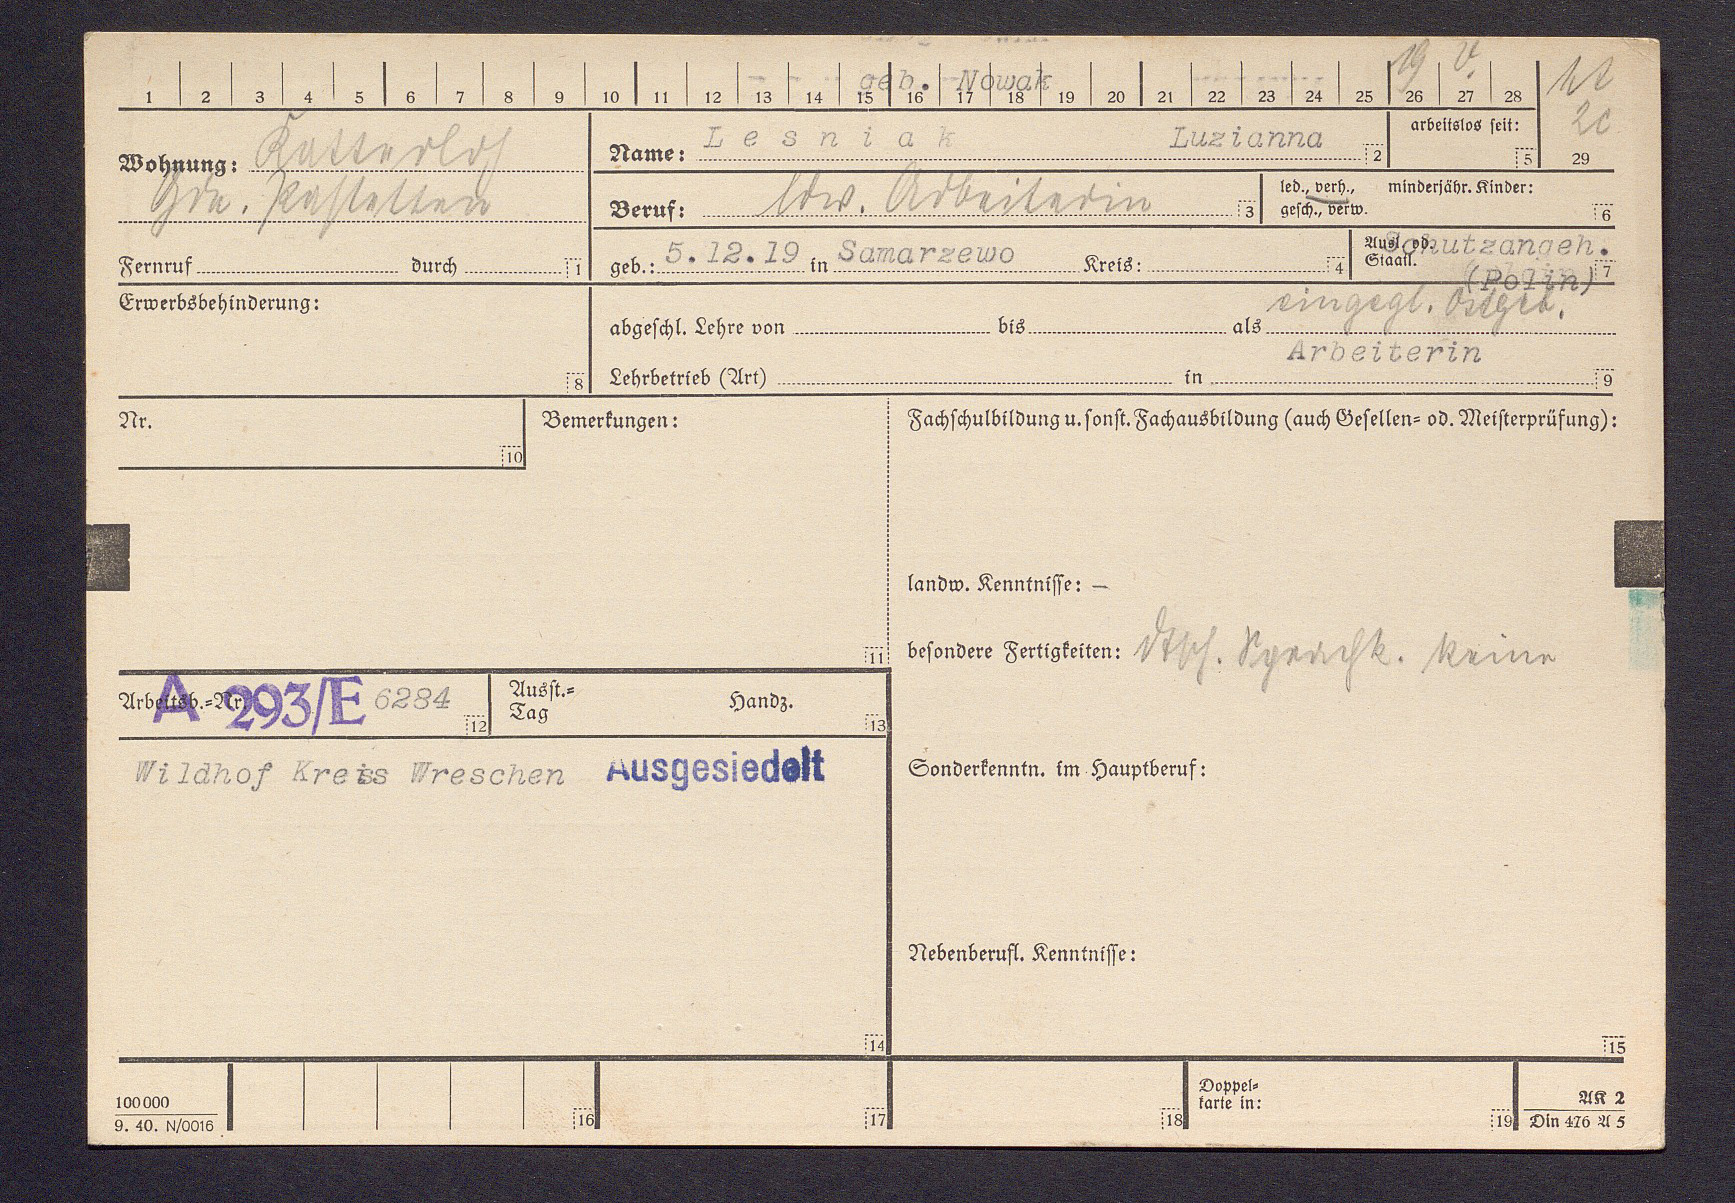 19 V.
geb. Nowak
1 2 3 4 5 6 7 8 9 10 11 12 13 14 15 16 17 18 19 20 21 22 23 24 25 26 27 28
2c
29
Wohnung:
Gde. Pastetten
Name: Lesniak Luzianna 2
arbeitslos seit: 5
Beruf: ldw. Arbeiterin 3
led., verh., gesch., verw.
minderjähr. Kinder: 6
Fernruf durch 1
geb.: 5.12.19 in Samarzewo Kreis: 4
Ausl. od. Staatl. Schutzangeh. (Polin) 7
eingegl. Ostgeb.
Erwerbsbehinderung: 8
abgeschl. Lehre von bis als
Arbeiterin
Lehrbetrieb (Art) in 9
Nr. 10
Bemerkungen: 11
Fachschulbildung u. sonst. Fachausbildung (auch Gesellen- od. Meisterprüfung):
landw. Kenntnisse: —
besondere Fertigkeiten: dtsch. Sprachk. keine
Arbeitsb.-Nr. A 293/E 6284 12
Ausst.-Tag Handz. 13
Wildhof Kreis Wreschen Ausgesiedelt
Sonderkenntn. im Hauptberuf:
Nebenberufl. Kenntnisse:
14
15
100000
9. 40. N/0016
16
17
18
Doppel-
karte in: 19
AK 2
Din 476 A 5